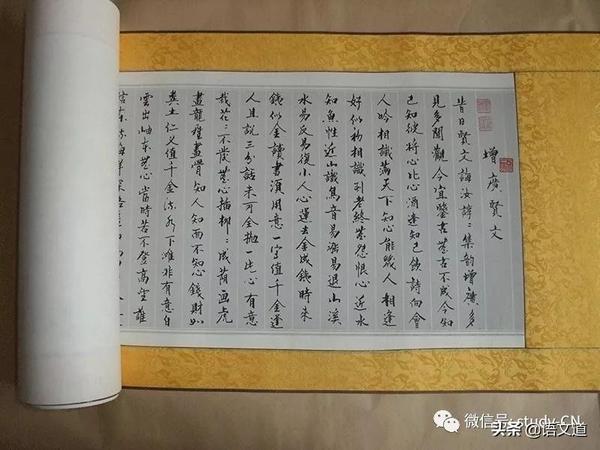 增廣賢文
昔日賢文誨汝諄〻集韵增廣多
見多聞觀今宜鑒古無古不成今知
己知彼將心比心酒逢知己飲詩向會
人吟相識滿天下知心能幾人相逢
好似初相識到老終無怨恨心近水
知魚性近山識鳥音易漲易退山溪
水易反易復小人心運去金成鐵時來
鐵似金讀書須用意一字值千金逢
人且說三分話未可全抛一片心有意
栽花〻不發無心插柳〻成蔭画虎
畫龍難畫骨知人知面不知心錢財如
糞土仁义值千金流水下灘非有意白
雲出岫本無心當時若不登高望誰
微信号: study-CN
头条 @语文道